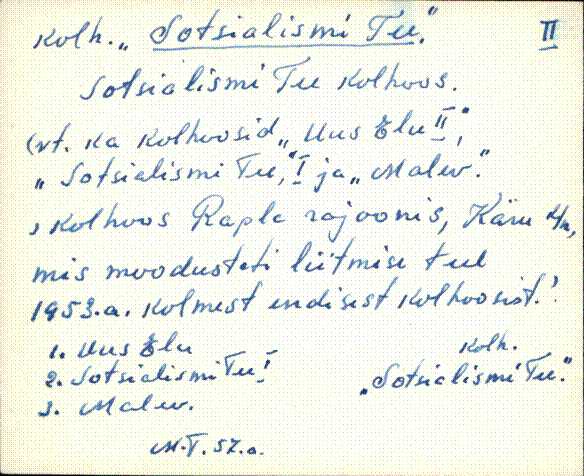 Kolh. „Sotsialismi Tee." II
Sotsialismi Tee kolhoos.
(vt. ka kolhoosid „Uus Elu II",
„Sotsialismi Tee," I ja „Malev."
, kolhoos Rapla rajoonis, Käru k/n,
mis moodustati liitmise teel
1953.a. kolmest endisest kolhoosist.:
1. Uus Elu
2. Sotsialismi Tee I
3. Malev.
kolh.
„Sotsialismi Tee."
M.T. 57.a.